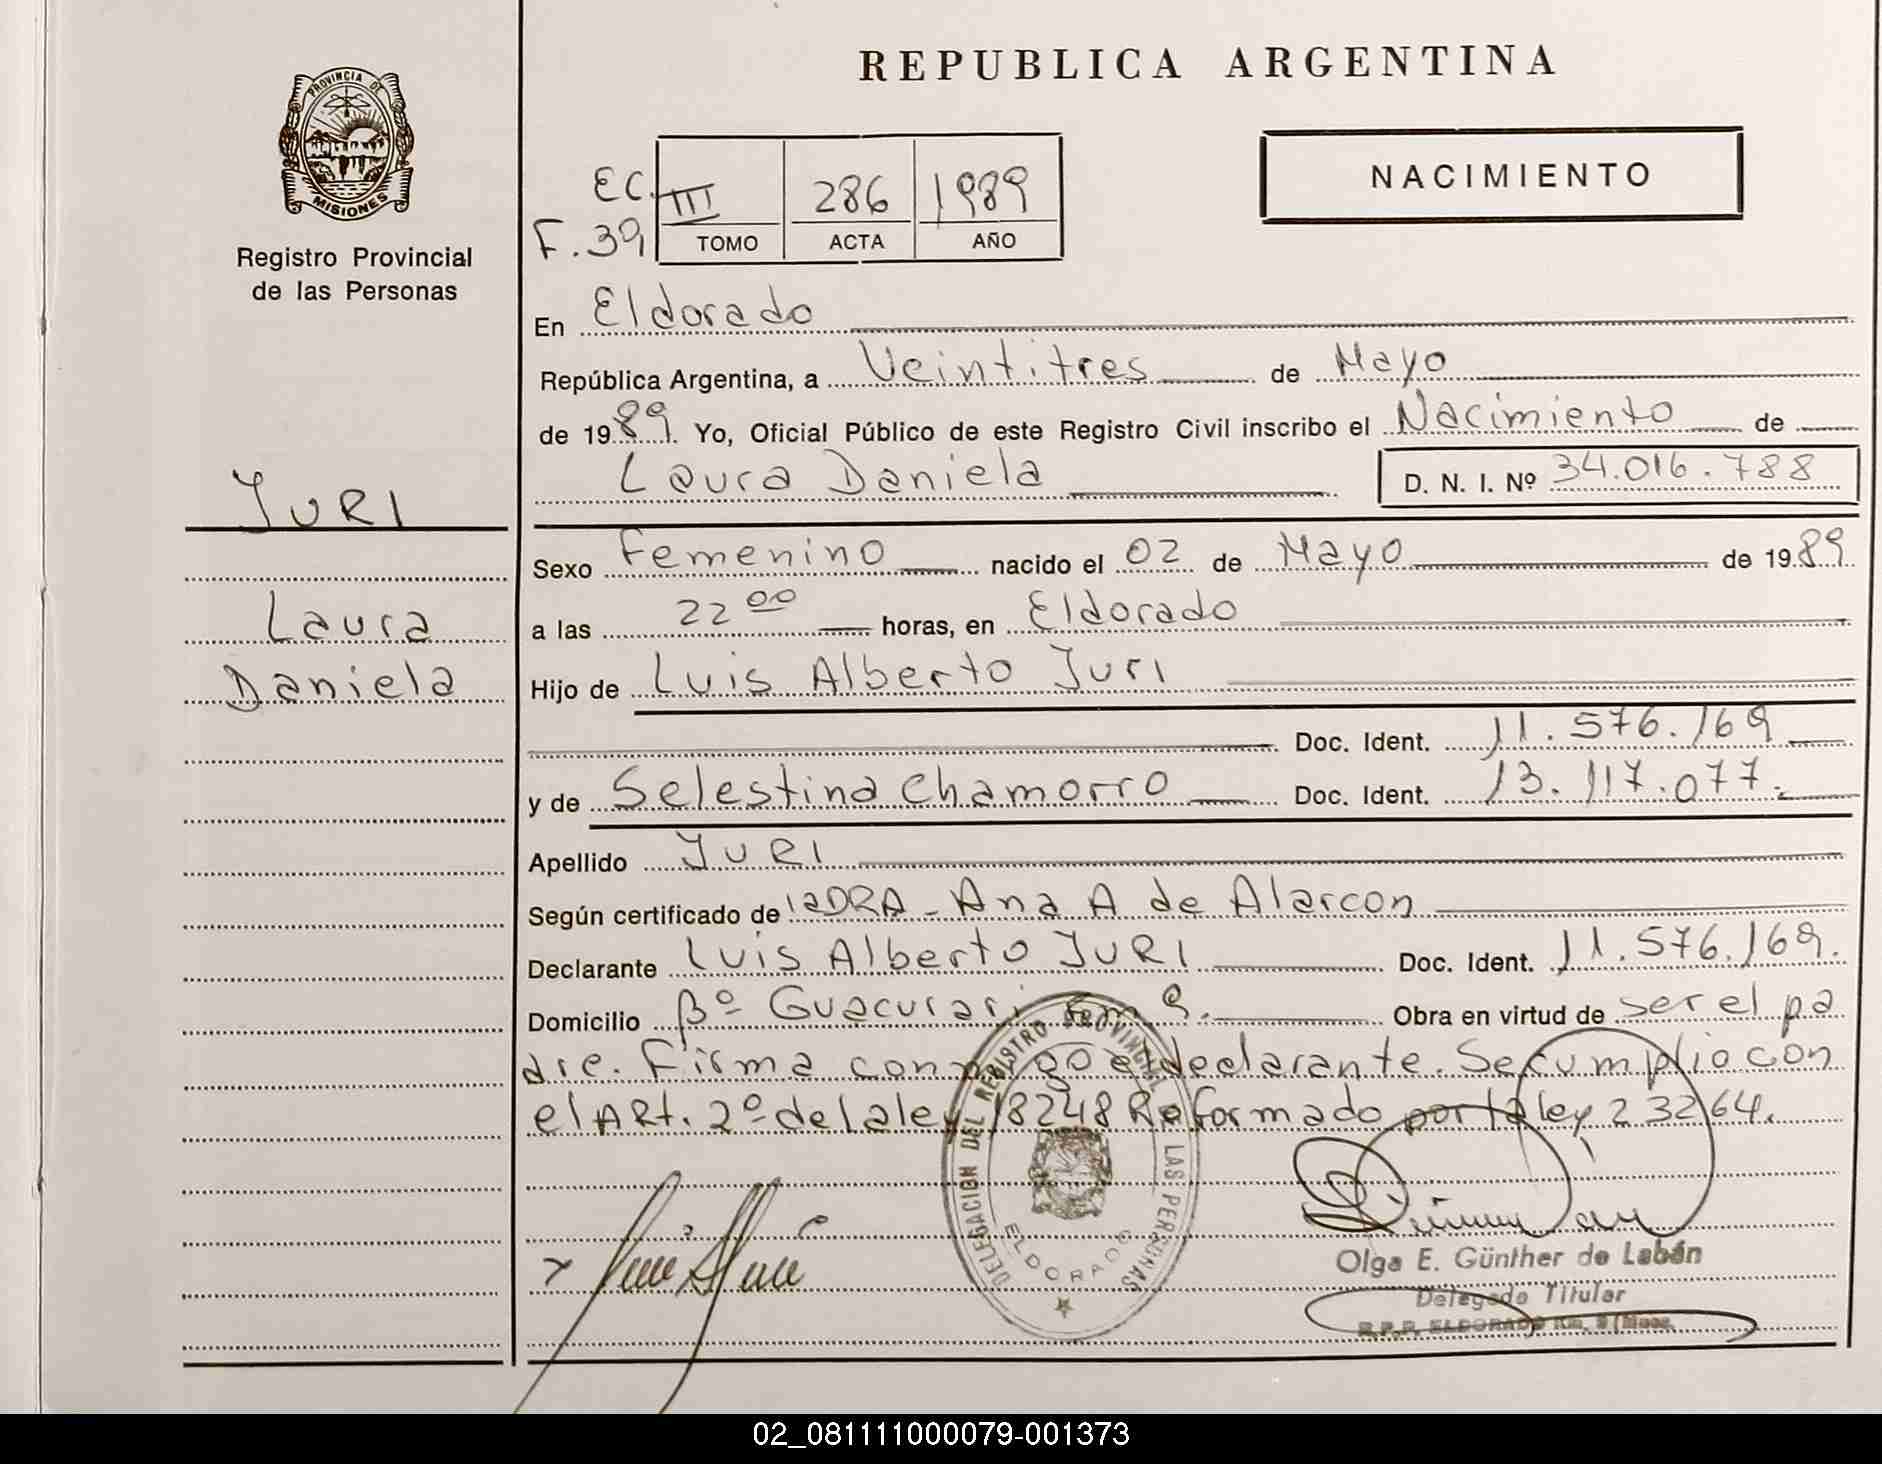 REPUBLICA ARGENTINA
PROVINCIA DE
MISIONES
Registro Provincial
de las Personas
NACIMIENTO
EC. III 286 1989
F. 39 TOMO ACTA AÑO
En Eldorado
República Argentina, a Veintitres de Mayo
de 1989. Yo, Oficial Público de este Registro Civil inscribo el Nacimiento de
Laura Daniela D. N. I. Nº 34.016.788
JURI
Laura
Daniela
Sexo Femenino nacido el 02 de Mayo de 1989
a las 22 00 horas, en Eldorado
Hijo de Luis Alberto Juri
Doc. Ident. 11.576.169
y de Selestina Chamorro Doc. Ident. 13.117.077.
Apellido JURI
Según certificado de DRA - Ana A de Alarcon
Declarante Luis Alberto JURI Doc. Ident. 11.576.169.
Domicilio Bº Guacurari Km 9. Obra en virtud de ser el pa
dre. Firma conmigo el declarante. Se cumplio con
el ARt. 2º de la ley 18248 Reformado por la ley 23264.
DELEGACION DEL REGISTRO PROVINCIAL DE LAS PERSONAS
ELDORADO
Olga E. Günther de Labán
Delegado Titular
R.P.P. ELDORADO Km. 9 (Mnes.
02_081111000079-001373